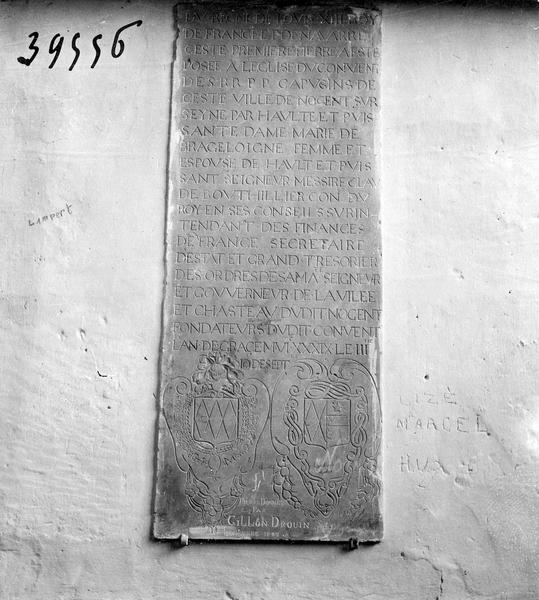 39556
DV REGNE DE LOVIS XIII ROY
DE FRANCE ET DE NAVARRE
CESTE PREMIERE PIERRE A ESTE
POSEE A LEGLISE DV CONVENT
DES R R P P CAPVSINS DE
CESTE VILLE DE NOGENT SVR
SEYNE PAR HAVLTE ET PVIS
SANTE DAME MARIE DE
BRAGELOIGNE FEMME ET
ESPOVSE DE HAVLT ET PVIS
SANT SEIGNEVR MESSIRE CLAV
DE BOVTHILLIER CON DV
ROY EN SES CONSEILS SVRIN
TENDANT DES FINANCES
DE FRANCE SECRETAIRE
DESTAT ET GRAND TRESORIER
DES ORDRES DE SA MA SEIGNEVR
ET GOVVERNEVR DE LA VILLE
ET CHASTEAV DVDIT NOGENT
FONDATEVRS DVDIT CONVENT
LAN DE GRACE MVI XXXIX LE III
IO DE SEPT
PAR
GILLON DROUIN
Lampert
LIZE
MARCEL